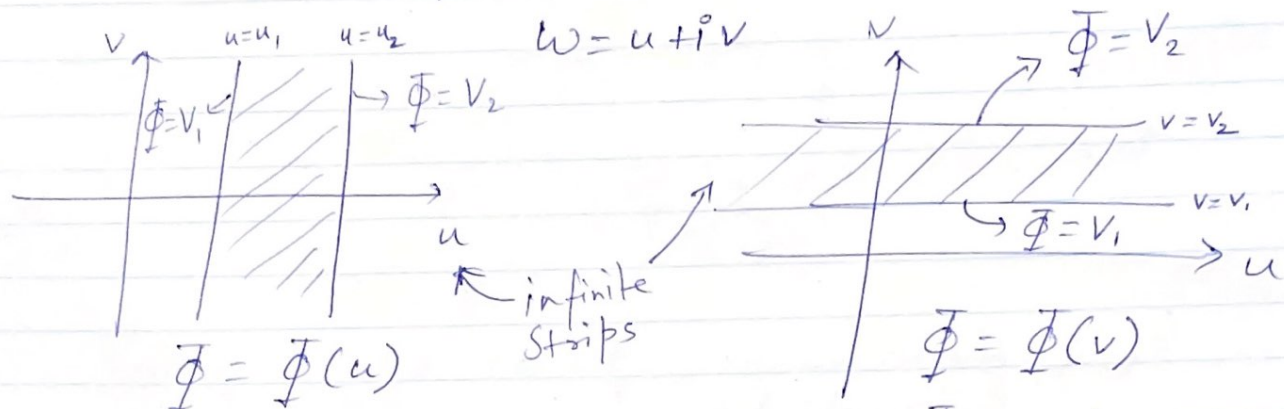 u=u₁ u=u₂ w = u + i v
v
Φ=V₁
Φ = V₂
u
Φ = Φ(u)
infinite
strips
v
Φ = V₂
v = v₂
v = v₁
Φ = V₁
u
Φ = Φ(v)